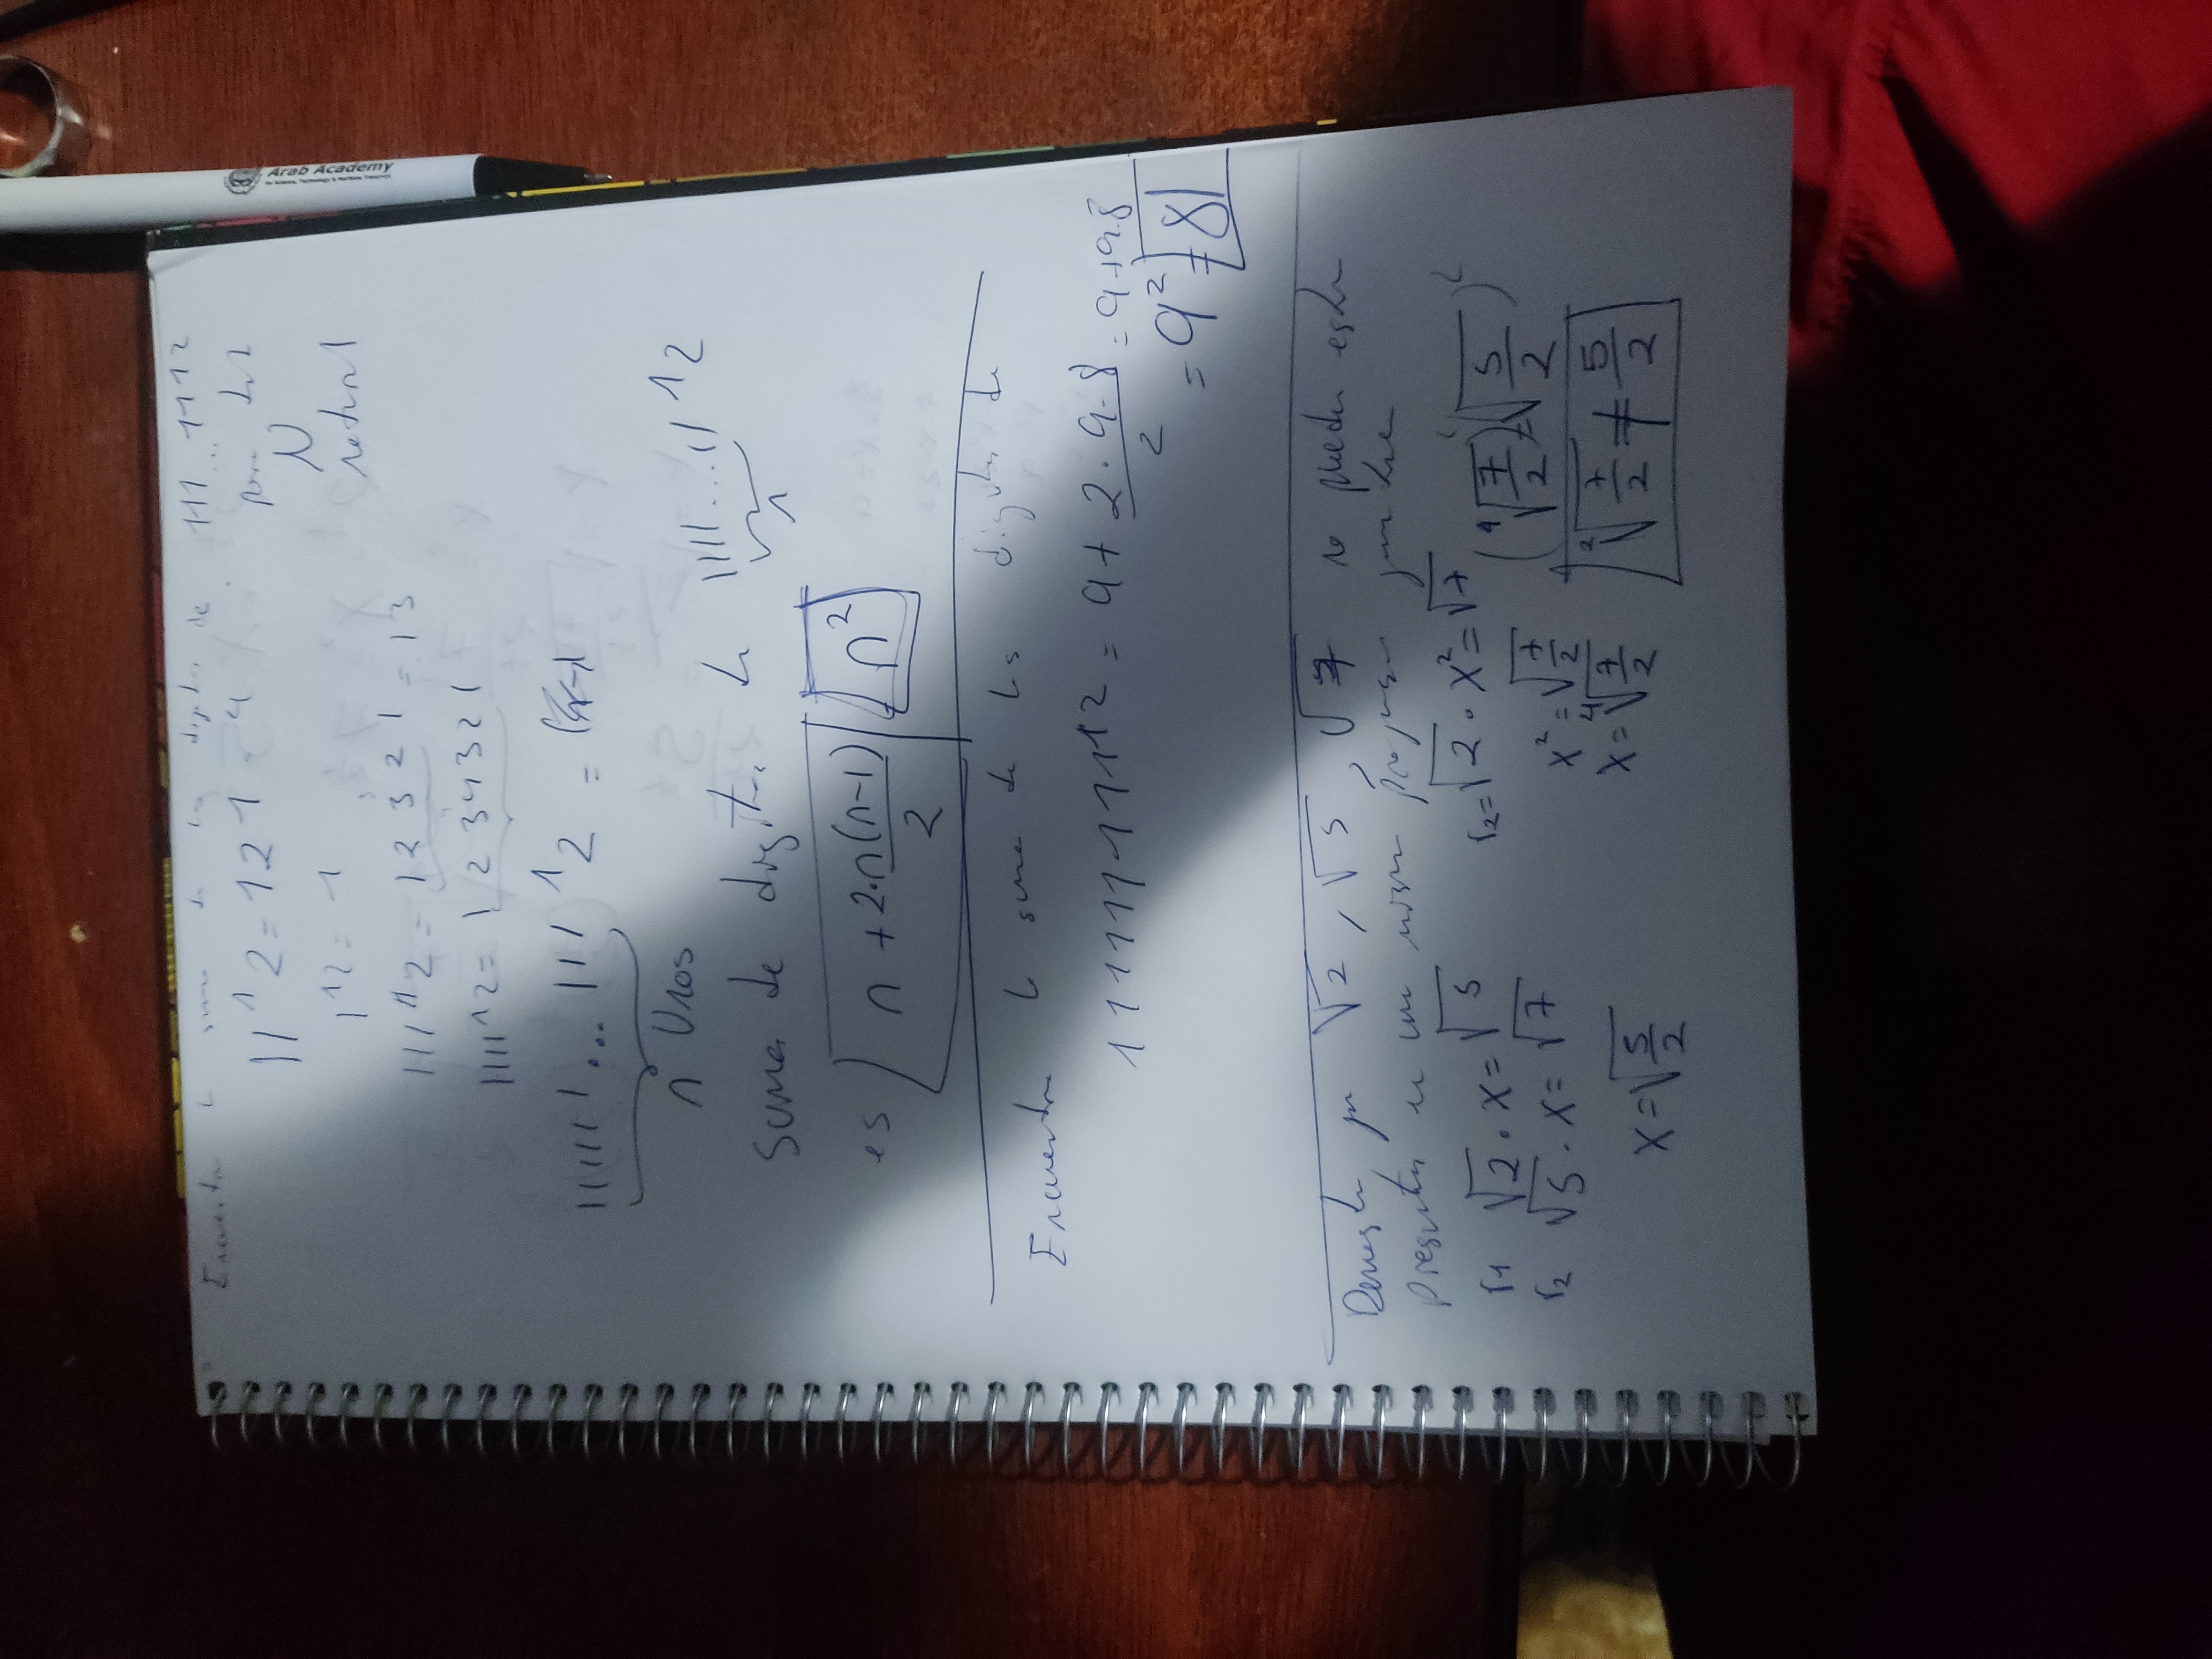 Encuentra la suma de los digitos de 111...111^2
11^2 = 121 4 para tod
N
natural
1^2 = 1
111^2 = 12321 = 13
1111^2 = 1234321
1111111...111^2 =
n Unos
suma de digitos de 1111...11^2
n
es n + 2·n(n-1)/2 n²
Encuentra la suma de los digitos de
111111111^2 = 9 + 2·9·8/2 = 9+9·8
= 9² = 81
Demuestra que √2, √5, √7 no pueden estar
presentes en una misma
r1 √2 · x = √5
r2 √5 · x = √7
x = √5/2
r2 = √2 · x² = √7
x² = √7/2
x = ⁴√7/2
(⁴√7/2)² = (√5/2)²
²√7/2 ≠ 5/2
Arab Academy